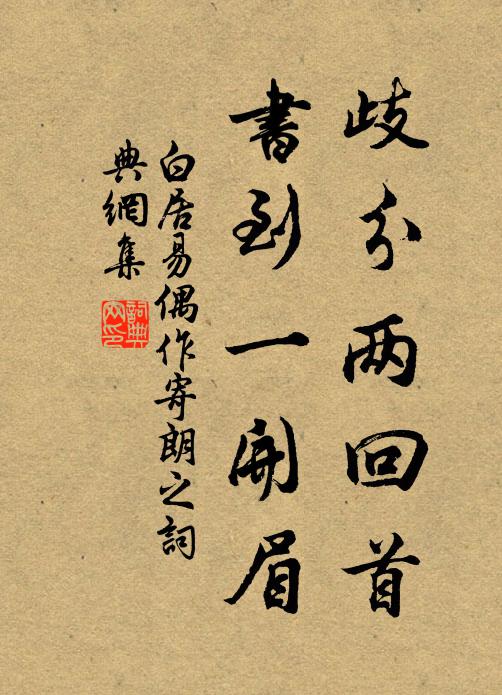 歧分两回首
書到一開眉
白居易偶作寄朗之詞
典網集
詞典
网印